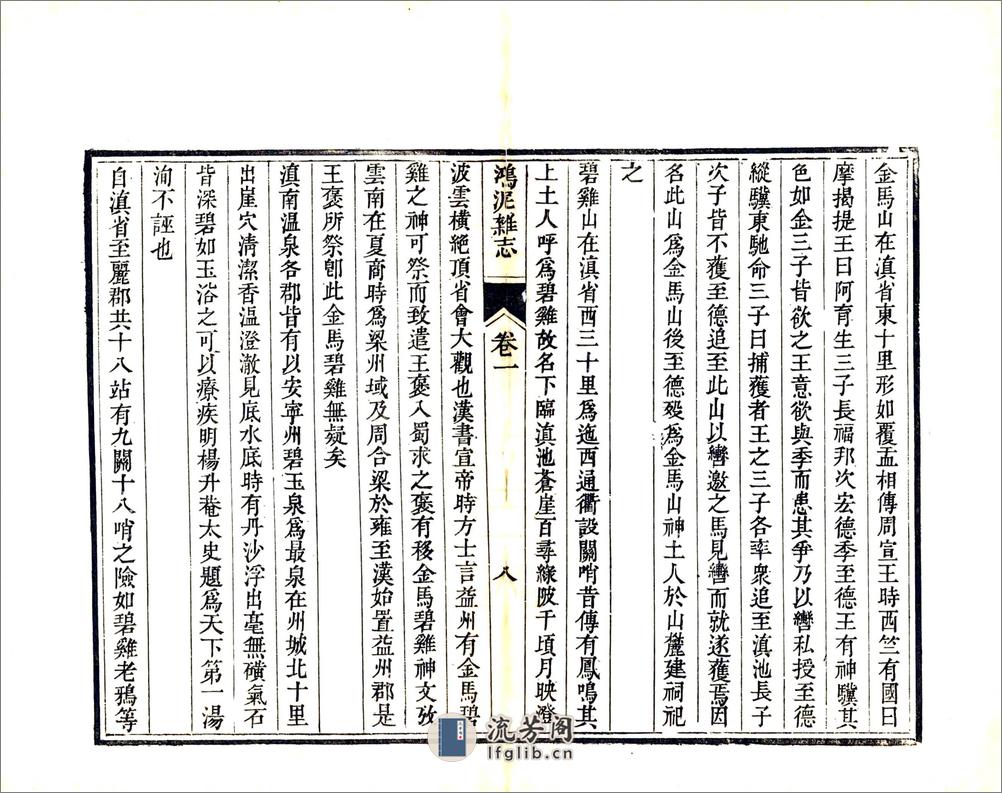 金馬山在滇省東十里形如覆盂相傳周宣王時西竺有國曰
摩揭提王曰阿育生三子長福邦次宏德季至德王有神驥其
色如金三子皆欲之王意欲與季而患其爭乃以轡私授至德
縱驥東馳命三子曰捕獲者王之三子各率衆追至滇池長子
次子皆不獲至德追至此山以轡邀之馬見轡而就遂獲焉因
名此山爲金馬山後至德歿爲金馬山神土人於山麓建祠祀
之
碧雞山在滇省西三十里爲迤西通衢設關哨昔傳有鳳鳴其
上土人呼爲碧雞故名下臨滇池蒼崖百尋綠陂千頃月映澄
鴻泥雜志
卷一
八
波雲橫絕頂省會大觀也漢書宣帝時方士言益州有金馬碧
雞之神可祭而致遣王褒入蜀求之褒有移金馬碧雞神文攷
雲南在夏商時爲梁州域及周合梁於雍至漢始置益州郡是
王褒所祭卽此金馬碧雞無疑矣
滇南溫泉各郡皆有以安寧州碧玉泉爲最泉在州城北十里
出崖穴清潔香溫澄澈見底水底時有丹沙浮出毫無磺氣石
皆深碧如玉浴之可以療疾明楊升菴太史題爲天下第一湯
洵不誣也
自滇省至麗郡共十八站有九關十八哨之險如碧雞老鴉等
流芳阁
lfglib.cn